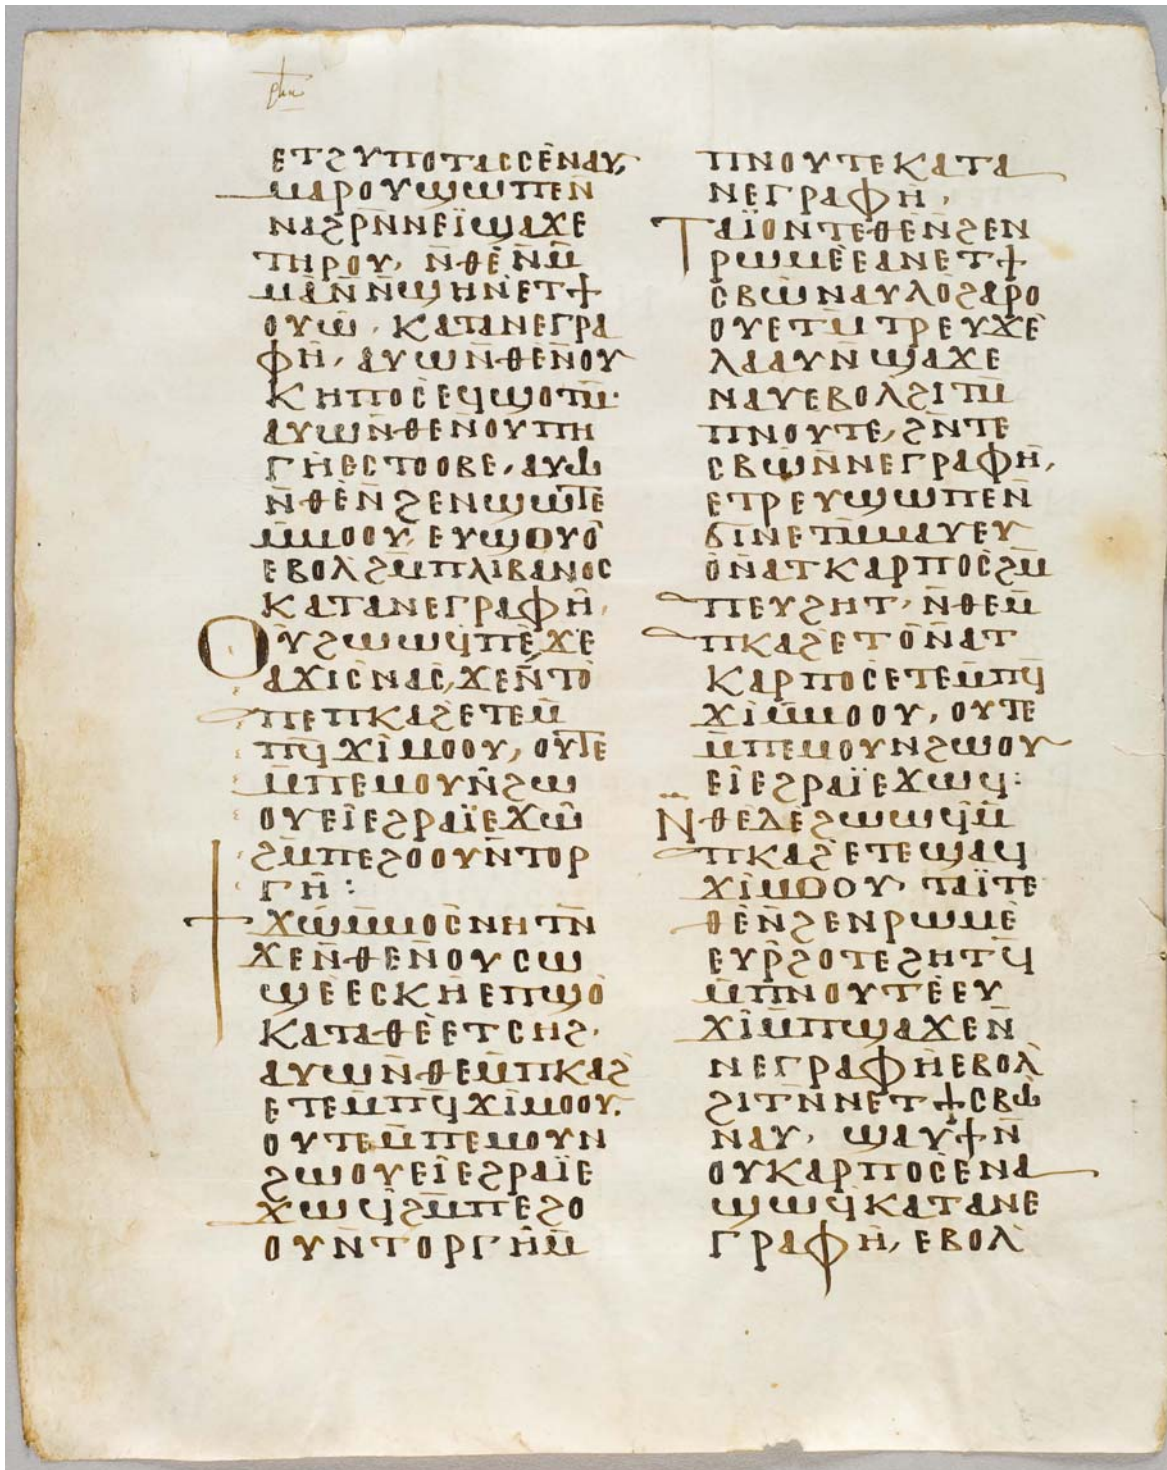 ⲉⲧϩⲩⲡⲟⲧⲁⲥⲥⲉ̀ⲛⲁⲩ,
ⲙⲁⲣⲟⲩϣⲱⲡⲉⲛ̄
ⲛⲁϩⲣⲛ̄ⲛⲉⲓ̈ϣⲁϫⲉ
ⲧⲏⲣⲟⲩ, ⲛ̄ⲑⲉ̀ⲛ̄ⲙ̄
ⲙⲁ̀ⲛ̄ⲛ̄ϣⲏⲛ̀ⲉⲧϯ
ⲟⲩⲱ̀, ⲕⲁⲧⲁⲛⲉⲅⲣⲁ
ⲫⲏ̀, ⲁⲩⲱⲛ̄ⲑⲉ̀ⲛⲟⲩ
ⲕⲏⲡⲟⲥ̀ⲉϥϣⲟⲧⲙ̄·
ⲁⲩⲱⲛ̄ⲑⲉⲛ̄ⲟⲩⲡⲏ
ⲅⲏ̀ⲉⲥⲧⲟⲟⲃⲉ, ⲁⲩⲱ
ⲛ̄ⲑⲉ̀ⲛ̄ϩⲉⲛϣⲱⲧⲉ
ⲙ̄ⲙⲟⲟⲩ, ⲉⲩϣⲟⲩⲟ̀
ⲉⲃⲟⲗ̀ϩⲙ̄ⲡⲗⲓⲃⲁⲛⲟⲥ
ⲕⲁⲧⲁⲛⲉⲅⲣⲁⲫⲏ̂,
ⲟⲩϩⲱⲱϥ̀ⲡⲉ̀ϫⲉ
ⲁϫⲓⲥ̀ⲛⲁⲥ̀, ϫⲉⲛ̄ⲧⲟ̀
ⲡⲉⲡⲕⲁϩ̀ⲉⲧⲉⲙ̄
ⲡϥ̄ϫⲓ̀ⲙⲟⲟⲩ, ⲟⲩⲧⲉ
ⲙ̄ⲡⲉⲙⲟⲩⲛ̄ϩⲱ
ⲟⲩⲉⲓ̂ⲉϩⲣⲁⲓ̈ⲉϫⲱ̂
ϩⲙ̄ⲡⲉϩⲟⲟⲩⲛ̄ⲧⲟⲣ
ⲅⲏ̂:
ϫⲱ̀ⲙ̄ⲙⲟⲥ̀ⲛⲏⲧⲛ̄
ϫⲉⲛ̄ⲑⲉⲛ̄ⲟⲩⲥⲱ
ϣⲉ̀ⲉⲥⲕⲏ̀ⲉⲡϣⲟ̀
ⲕⲁⲧⲁⲑⲉ̀ⲉⲧⲥⲏϩ,
ⲁⲩⲱⲛ̄ⲑⲉⲙ̄ⲡⲕⲁϩ̀
ⲉⲧⲉⲙ̄ⲡϥ̄ϫⲓ̀ⲙⲟⲟⲩ,
ⲟⲩⲧⲉⲙ̄ⲡⲉⲙⲟⲩⲛ
ϩⲱⲟⲩⲉⲓ̂ⲉϩⲣⲁⲓ̈ⲉ
ϫⲱϥ̀ϩⲙ̄ⲡⲉϩⲟ
ⲟⲩⲛ̄ⲧⲟⲣⲅⲏ̂ⲙ̄
ⲡⲛⲟⲩⲧⲉⲕⲁⲧⲁ
ⲛⲉⲅⲣⲁⲫⲏ̀,
ⲧⲁⲓ̈ⲟⲛⲧⲉⲑⲉ̀ⲛ̄ϩⲉⲛ
ⲣⲱⲙⲉ̀ⲉⲁⲛⲉⲧϯ
ⲥⲃⲱ̀ⲛⲁⲩⲗⲟ̀ϩⲁⲣⲟ
ⲟⲩⲉⲧⲙ̄ⲧⲣⲉⲩϫⲉ̀
ⲗⲁⲁⲩⲛ̄ϣⲁϫⲉ
ⲛⲁⲩⲉⲃⲟⲗ̀ϩⲓⲧⲙ̄
ⲡⲛⲟⲩⲧⲉ, ϩⲛ̄ⲧⲉ
ⲥⲃⲱ̀ⲛ̄ⲛⲉⲅⲣⲁⲫⲏ̀,
ⲉⲧⲣⲉⲩϣⲱⲡⲉⲛ̄
ϭⲓⲛⲉⲧⲙ̄ⲙⲁⲩⲉⲩ
ⲟ̀ⲛ̄ⲁⲧⲕⲁⲣⲡⲟⲥ̀ϩⲙ̄
ⲡⲉⲩϩⲏⲧ, ⲛ̄ⲑⲉⲙ̄
ⲡⲕⲁϩ̀ⲉⲧⲟ̀ⲛ̄ⲁⲧ
ⲕⲁⲣⲡⲟⲥ̀ⲉⲧⲉⲙ̄ⲡϥ̄
ϫⲓ̀ⲙ̄ⲙⲟⲟⲩ, ⲟⲩⲧⲉ
ⲙ̄ⲡⲉⲙⲟⲩⲛϩⲱⲟⲩ
ⲉⲓ̂ⲉϩⲣⲁⲓ̈ⲉϫⲱϥ:
ⲛ̄ⲑⲉⲇⲉ̀ϩⲱⲱϥ̀ⲙ̄
ⲡⲕⲁϩ̀ⲉⲧⲉϣⲁϥ
ϫⲓ̀ⲙⲟⲟⲩ, ⲧⲁⲓ̈ⲧⲉ
ⲑⲉ̀ⲛ̄ϩⲉⲛⲣⲱⲙⲉ̀
ⲉⲩⲣ̄ϩⲟⲧⲉϩⲏⲧϥ̄
ⲙ̄ⲡⲛⲟⲩⲧⲉ̀ⲉⲩ
ϫⲓ̂ⲙ̄ⲡϣⲁϫⲉⲛ̄
ⲛⲉⲅⲣⲁⲫⲏ̀ⲉⲃⲟⲗ̀
ϩⲓⲧⲛ̄ⲛⲉⲧϯⲥⲃⲱ
ⲛⲁⲩ, ϣⲁⲩϯⲛ̄
ⲟⲩⲕⲁⲣⲡⲟⲥ̀ⲉⲛⲁ
ϣⲱϥ̀ⲕⲁⲧⲁⲛⲉ
ⲅⲣⲁⲫⲏ̀, ⲉⲃⲟⲗ̀